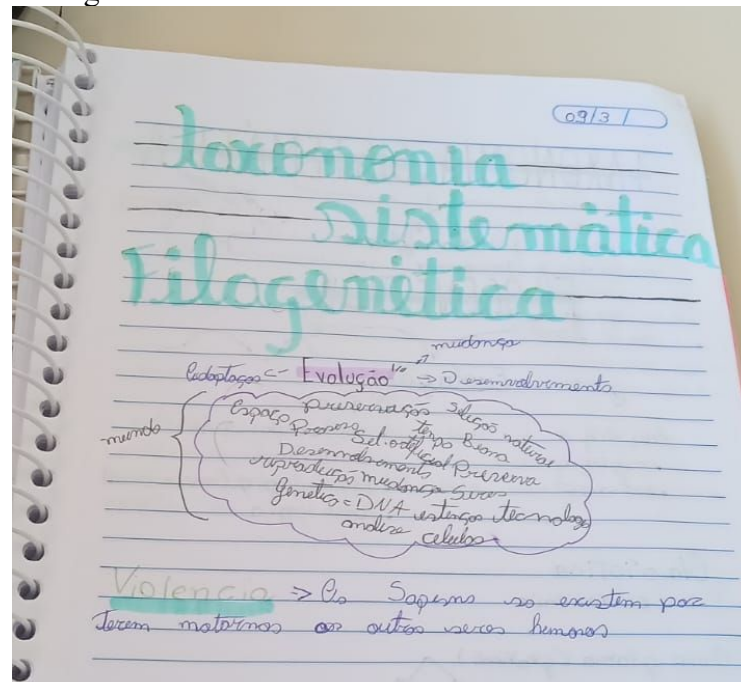 09/3/
Taxononia
sistemática
Filogenética
mudança
Evolução => Desenvolvimento
mundo
espaço preservação seleção natural
tempo
Sel. artificial Preserva
Desenvolvimento
reprodução mudança Seres
Genética = DNA tecnologia
analise celulas
Violencia => Os Sapiens so existem por
terem os outros seres humanos